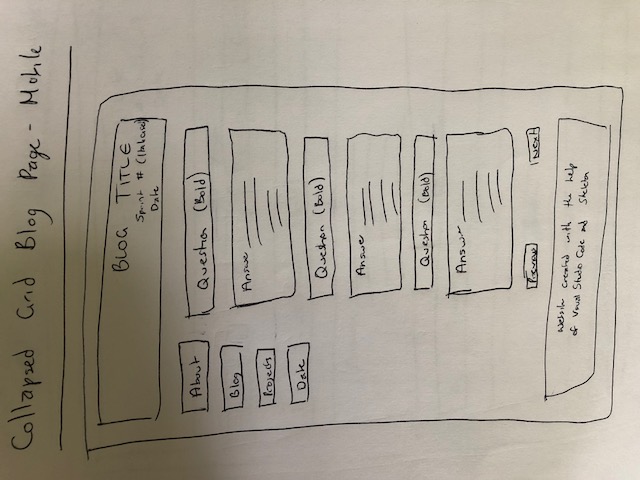 Collapsed Grid Blog Page - Mobile
BLOG TITLE
Sprint # (Italicised)
Date
About
Blog
Projects
Date
Question (Bold)
Answer
Question (Bold)
Answer
Question (Bold)
Answer
Previous
Next
Website created with the help
of Visual Studio Code and Skeleton